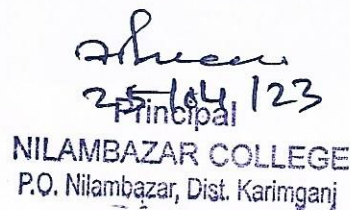 25/04/23
Principal
NILAMBAZAR COLLEGE
P.O. Nilambazar, Dist. Karimganj